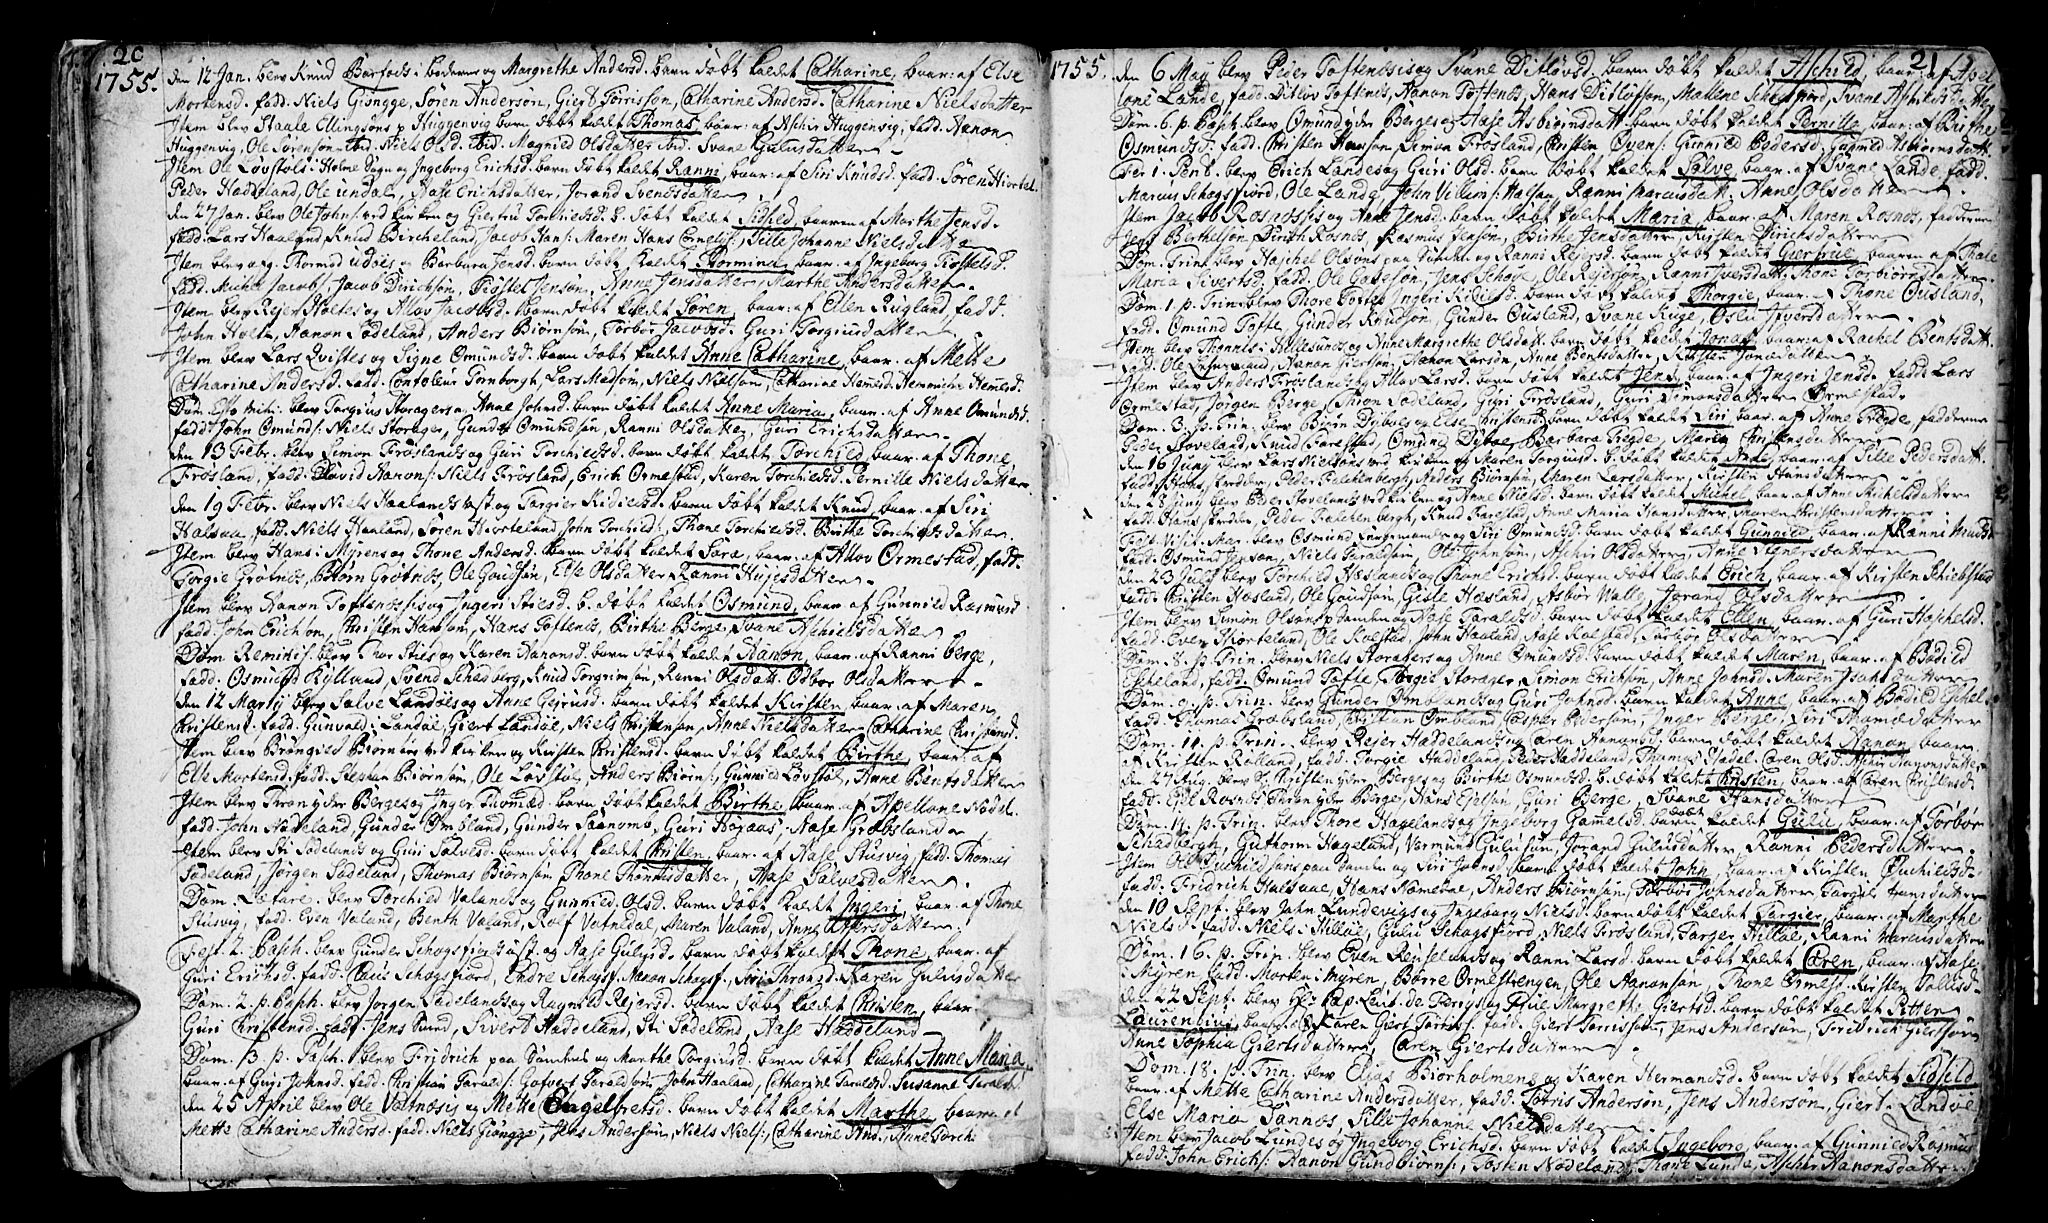 20
1755. den 12 Jan. blev Knud Barfods i bederne og Margrethe Andersd. barn døbt kaldet Catharine, baar: af Else
Mortensd. fadd. Niels Giøngge, Søren Andersøn, Giert Torrissøn, Catharine Andersd. Catharine Nielsdatter
Item blev Staale Ellingsøns p Huggenvig barn døbt kaldet Thomas baar: af Aschir Huggenvig, fadd. Aanon
Huggenvig, Ole Sørensøn ibid. Niels Olsd. ibid. Magnild Olsdatter ibid. Svane Gulusdatter
Item Ole Løvstøls i Holme Sogn og Ingeborg Erichsd. barn døbt kaldet Ranni, baar: af Siri Knudsd. fadd. Søren Hiortel.
Peder Haddeland, Ole undal, Aase Erichsdatter, Jorand Svendsdatter
den 27 Jan. blev Ole Johns: ved kirken og Giertru Torchieldsd. b. døbt kaldet Sidsed baaren af Marthe Jensd.
fadd. Lars Haaland, Knud Bircheland, Jacob Hans: Maren Hans Cornelis: Tille Johanne Nielsdatter
Item blev afg. Thormod udøls og Barbara Jensd. barn døbt kaldet Thormine, baar. af Ingeborg Tiøstelsd.
fadd. Michel Jacobs: Jacob Dirichsøn, Tiøstel Jensøn, Anne Jensdatter, Marthe Andersdatter
Item blev Rejer Holtes og Allov Jacobsd. barn døbt kaldet Søren, baar: af Ellen Rugland, fadd.
John Holte, Aanon Sødeland, Anders Biørnsøn, Torbor Jacobsd. Guri Torgiusdatter
Item blev Lars Qvistes og Signe Omundsd. barn døbt kaldet Anne Catharine, baar. af Mette
Catharine Andersd. fadd. Contoleur Tornborgh, Lars Madsøn, Niels Nielsøn, Catharine Hemmerd. Hemmine Hemersd.
Dom. Esto mihi. blev Torgius Storagers og Anne Johnsd. barn døbt kaldet Anne Maria, baar. af Anne Omundsd.
fadd: John Omunds: Niels Storager, Gunder Omundsøn, Ranni Olsdatter, Guri Erichsdatter
den 13 Febr. blev Simon Frøslands og Guri Torchieldsd. barn døbt kaldet Torchild, baar. af Thone
Frøsland, fadd. David Aanons: Niels Frøsland, Erich Ormestad, Karen Torchieldsd. Pernille Nielsdatter
den 19 Febr. blev Niels Haalands og Torgier Kidielsd. barn døbt kaldet Knud, baar. af Siri
Halsaa, fadd. Niels Haaland, Søren Hiorteland, John Torchild: Thone Torchieldsd. Birthe Torchieldsdatter
Item blev Hans i Myrens og Thone Andersd. barn døbt kaldet Sara, baar. af Allov Ormestad, fadd.
Torgie Grøtnes, Biørn Grøtnes, Ole Goudsøn, Else Olsdatter, Ranni Hujesdatter
Item blev Aanon Toftenessis og Ingeri Stiesd. b. døbt kaldet Osmund, baar. af Gunnild Rasmusd
fadd. John Erichsøn, Christen Hansøn, Hans Toftenes, Birthe Berge, Svane Aschieldsdatter
Dom. Reminis. blev Thor Sties og Karen Aanonsd. barn døbt kaldet Aanon, baar. af Ranni Berge,
fadd. Osmund Rylland, Svend Schadberg, Knud Torgrimsøn, Ranni Olsdatt. Odbor Olsdatter
den 12 Martj blev Salve Landøls og Anne Gejrusd. barn døbt kaldet Kirsten, baar. af Maren
Christensd. fadd. Gunvald: Landøe, Giert Landøe, Niels Christensøn, Anne Nielsdatter, Catharine Christensd.
Item blev Brøngild Biørnsøn ved kirken og Kirsten Christensd. barn døbt kaldet Birthe, baar. af
Else Mortensd. fadd. Stephan Biørnsøn, Ole Løvstøl, Anders Biørns: Gunnild Løvstøl, Anne Bentsdatter
Item blev Thron yder Berges og Inger Thomæd. barn døbt kaldet Birthe baar. af Apellone Nødel.
fadd. John Nødeland, Gunder Ombland, Gunder Saanomb, Guri Høyaas, Aase Græbsland
Item blev Sti Sødelands og Guri Salvesd. barn døbt kaldet Christen, baar. af Aase Stusvig, fadd. Thomas
Sødeland, Jørgen Sødeland, Thomas Biørnsøn, Thone Thommisdatter, Aase Salvesdatter
Dom. Lætare. blev Torchild Valands og Gunnild Olsd. barn døbt kaldet Ingeri, baar. af Thone
Stusvig, fadd. Even Valand, Benth Valand, Rolf Vatnedal, Maren Valand, Anne
Fest. 2. Pasch. blev Gunder Schogsfiords og Aase Gulusd. barn døbt kaldet Thone, baar. af
Guri Erichsd. fadd. Claus Schogsfiord, Endre Schogsf. Aanon Schogsf. Siri Thronsd. Karen Gulusdatter
Dom. 2. p. Pasch. blev Jørgen Sødelands og Ragnild Rejersd. barn døbt kaldet Christen, baar.
Guri Christensd. fadd. Jens Smed, Sivert Haddeland, Sti Sødeland, Aase Haddeland
Dom. 3. p. Pasch. blev Fridrich paa Sømdens og Marthe Torgiusd. barn døbt kaldet Anne Maria,
baar. af Guri Johnsd. fadd. Christian Tarald: Gofvert Taraldsøn, John Haaland, Catharine Taraldsd. Susanne Taralds.
den 25 April blev Ole Vatnøsis og Mette Engelbretsd. barn døbt kaldet Marthe, baaren af
Mette Catharine Andersd. fadd. Niels Giøngge, Jens Andersøn, Niels Niels: Catharine And. Anne Torch
21
1755. den 6 Maij blev Peder Toftenessis og Svane Ditlovsd. barn døbt kaldet Aschild, baar. af Apel
lone Lande, fadd. Ditlov Toftenes, Aanon Toftenes, Hans Ditlofsøn, Mallene Schogsfiord, Svane Aschieldsdatter
Dom. 6. p. Pasch. blev Omund yder Berges og Aase Asbiørnsdatt. barn døbt kaldet Pernille, baar. af Birthe
Osmunds: fadd. Christen Hansøn, Simon Frøsland, Christen Ovens: Gunnild Pedersd. Gunnild Asbiornsdatt.
Fer 1. Pent. blev Erich Landes og Guri Olsd. barn døbt kaldet Salve, baar. af Svane Lande, fadd.
Marcus Schogsfiord, Ole Lande, John Villums: Halsaa, Ranni Marcusdatt. Anne Olsdatter
Item Jacob Rosnessis og Anne Jensd. barn døbt kaldet Maria, baar. af Maren Rosnes, fadderne
Jens Berthelsøn, Dirich Rosnes, Rasmus Jensøn, Birthe Jensdatter, Kirsten Dirichsdatter
Dom. Trinit. blev Haschel Olsøns paa Sømden og Ranni Rejersd. barn døbt kaldet Giertrue, baaren af Thale
Maria Sivertsd. fadd. Ole Gottesøn, Jens Schøve, Ole Rejersøn, Ranni Jversdatt. Thone Torbiørnsdatter
Dom. 1. p. Trin. blev Thore Toftes Ingeri Kidielsd. barn døbt kaldet Thorgie, baar. af Thone Ousland,
fadd. Omund Tofte, Gunder Knudsøn, Gunder Ousland, Svane Ruge, Oslu Jversdatter
Item blev Thønnis i Hellesunds og Anne Margrethe Olsdatt. barn døbt kaldet Jonas, baar. af Rachel Bentsdatt.
fadd. Ole, Aanon Larsøn, Anne Bentsdatter, Kirsten Jonædatter
Item blev Anders Frøslands og Allov Larsd. barn døbt kaldet Jens, baar. af Ingeri Jensd. fadd. Lars
Ormestad, Jørgen Berge, Thron Sødeland, Guri Frøsland, Guri Simonsdatter Ormestad
Dom. 3. p. Trin. blev Biørn Dybøls og Else Christensd. barn døbt kaldet Siri, baar. af Anne Tregde, fadderne
Peder Stoveland, Knud Farestad, Omund Dyboe, Barbara Tregde, Maria Christensdatter
den 16 Junij blev Lars Nielsøns ved kirken og Maren Torgiusd. b. døbt kaldet Anne, baar. af Tille Pedersdatt.
fadd. Hans, Peder Falchenbergh, Anders Biørnsøn, Maren Larsdatter, Kirsten Hansdatter
den 23 Junij blev Peder Stovelands ved kirken og Anne Nielsd. barn døbt kaldet Michel, baar. af Anne Michelsdatter
fadd. Hans, Peder Falchenbergh, Knud Farestad, Anne Maria Hansdatter, Maren Christensdatter
Fest. Visit. Mar. blev Osmund og Siri Omundsd. barn døbt kaldet Gunnild, baar. af Ranni Knudsd
fadd. Osmund Jensøn, Niels Taraldsøn, Ole Johnsøn, Aschir Olsdatter, Anne Stenersdatter
den 23 Julij blev Torchild Høslands og Thone Erichsd. barn døbt kaldet Erich, baar. af Kirsten Schiebstad
fadd. Christen Høsland, Ole Goudsøn, Gitle Høsland, Asbor Valle, Jorand Olsdatter
Item blev Simon Olsøns p Sømden og Aase Taraldsd. barn døbt kaldet Ellen, baar. af Guri Haschelsd.
fadd. Even Hiorteland, Ole Roestad, John Haaland, Aase Roestad, Torbor Olsdatter
Dom. 8. p. Trin. blev Niels Storagers og Anne Omundsd. barn døbt kaldet Maren, baar. af Bodild
Escheland, fadd. Omund Tofte, Torgie Storager, Simon Erichsøn, Anne Johnsd. Maren Isachsdatter
Dom. 9. p. Trin. blev Gunder Omblands og Guri Johnsd. barn døbt kaldet Anne, baar. af Bodild Eschel.
fadd. Thomas Græbsland, Christian Ombland, Casper Pedersøn, Inger Berge, Siri Thomædatter
Dom. 11. p. Trin. blev Rejer Haddelands og Caren Aanonsd. barn døbt kaldet Aanon, baar.
af Kirsten Rolland, fadd. Torgie Haddeland, Peder Haddeland, Thomas Sødel. Caren Olsd. Aschir Aanonsdatter
den 27 Aug. blev S. Kristen yder Berges og Birthe Osmundsd. b. døbt kaldet Christen, baar. af Caren Christensd.
fadd. Giul Rosnes, Thron yder Berge, Hans Ejelsøn, Guri Berge, Svane Hansdatter
Dom. 14. p. Trin. blev Thore Hagelands og Ingeborg Gammelsd. barn døbt kaldet Gulu, baar. af Torbor
Schadbergh, Guthorm Hageland, Vermund Gulusøn, Jorand Gulusdatter, Ranni Pedersdatter
Item Ole Buchieldsøns paa Sømden og Siri Johnsd. barn døbt kaldet John, baar. af Kirsten Buchieldsd.
fadd. Fridrich Halsaae, Hans Nømeboe, Anders Biørnsøn, Torbor Johnsdatter, Targel Hansdatter
den 10 Sept. blev John Lundevigs og Ingeborg Nielsd. barn døbt kaldet Torgier, baar. af Marthe
Nielsd. fadd. Niels Hilløe, Gulu Schogsfiord, Niels Frøsland, Torger Hilløe, Ranni Marcusdatter
Dom. 16. p. Trin. blev Even Reuselands og Ranni Larsd. barn døbt kaldet Caren, baar. af Aase
i Myren, fadd. Morten i Myren, Børre Ormestrengen, Ole Aanonsøn, Thone Ormest. Kirsten Tollisd.
den 22 Sept. blev Hr. Cap. Leut. de Ferrys og Frue Margrethe Giertsd. barn døbt kaldet Petter
Laurentius, baar. af Karen Giert Torris: fadd. Giert Torrissøn, Jens Andersøn, Fridrich Giertsøn
Anne Sophia Giertsdatter, Caren Giertsdatter
Dom. 18. p. Trin. blev Elias Biørholmens og Karen Hermandsd. barn døbt kaldet Sidseld
baar. af Mette Catharine Andersdatter, fadd. Torris Andersøn, Jens Andersøn, Giert Landøe
Else Maria Tannes, Tille Johanne Nielsdatter
Item blev Jacob Lundes og Ingeborg Erichsd. barn døbt kaldet Ingeborg, baar. af Gunnild Rasmus
fadd. John Erichs: Aanon Gundbiørns: Tosten Nødeland, Thone Lunde, Aschir Aanonsdatter